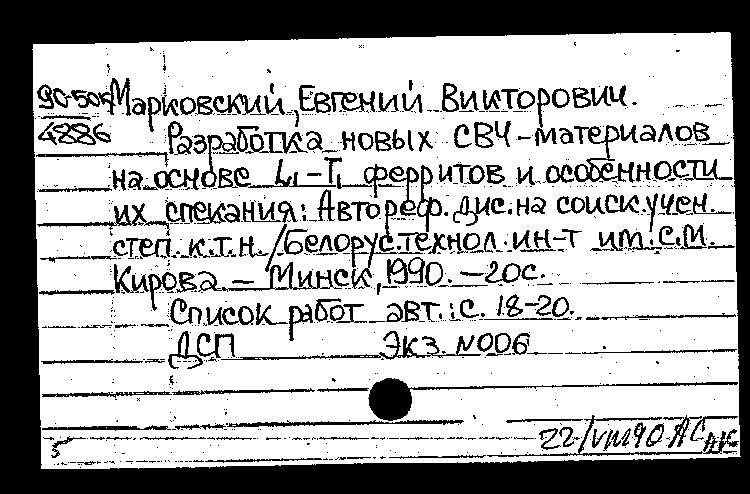 90-50574 Марковский, Евгений Викторович.
4886 Разработка новых СВЧ-материалов
на основе Li-Ti ферритов и особенности
их спекания: Автореф. дис. на соиск. учен.
степ. к.т.н. /Белорус. технол. ин-т им. С.М.
Кирова - Минск, 1990. - 20с.
Список работ авт.: с. 18-20.
ДСП Экз. N006
22/VIII90 АС
5